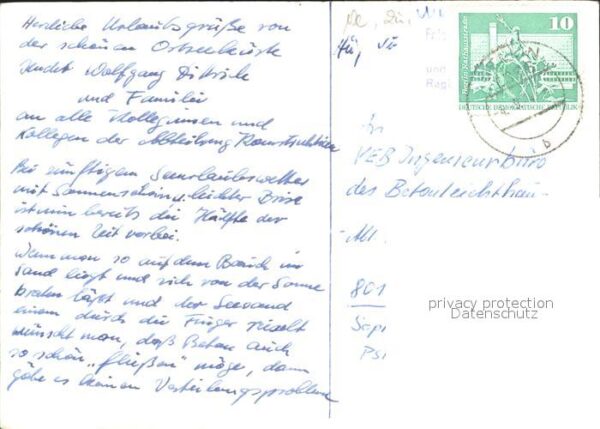 Herzliche Urlaubsgrüße von
der schönen Ostseeküste
sendet Wolfgang Dittrich
und Familie
an alle Kolleginnen und
Kollegen der Abteilung Konstruktion
Bei zünftigem Seeurlaubswetter
mit Sonnenschein u. leichter Brise
ist nun bereits die Hälfte der
schönen Zeit vorbei.
Wenn man so auf dem Bauch im
Sand liegt und sich von der Sonne
braten läßt und der Seesand
einem durch die Finger rieselt
wünscht man, daß Beton auch
so schön "fließen" möge, dann
gäbe es keinen Verteilungsprobleme
10
DEUTSCHE DEMOKRATISCHE REPUBLIK
An
VEB Ingenieurbüro
des Betonleichtbau-
Abt.
801
privacy protection
Datenschutz